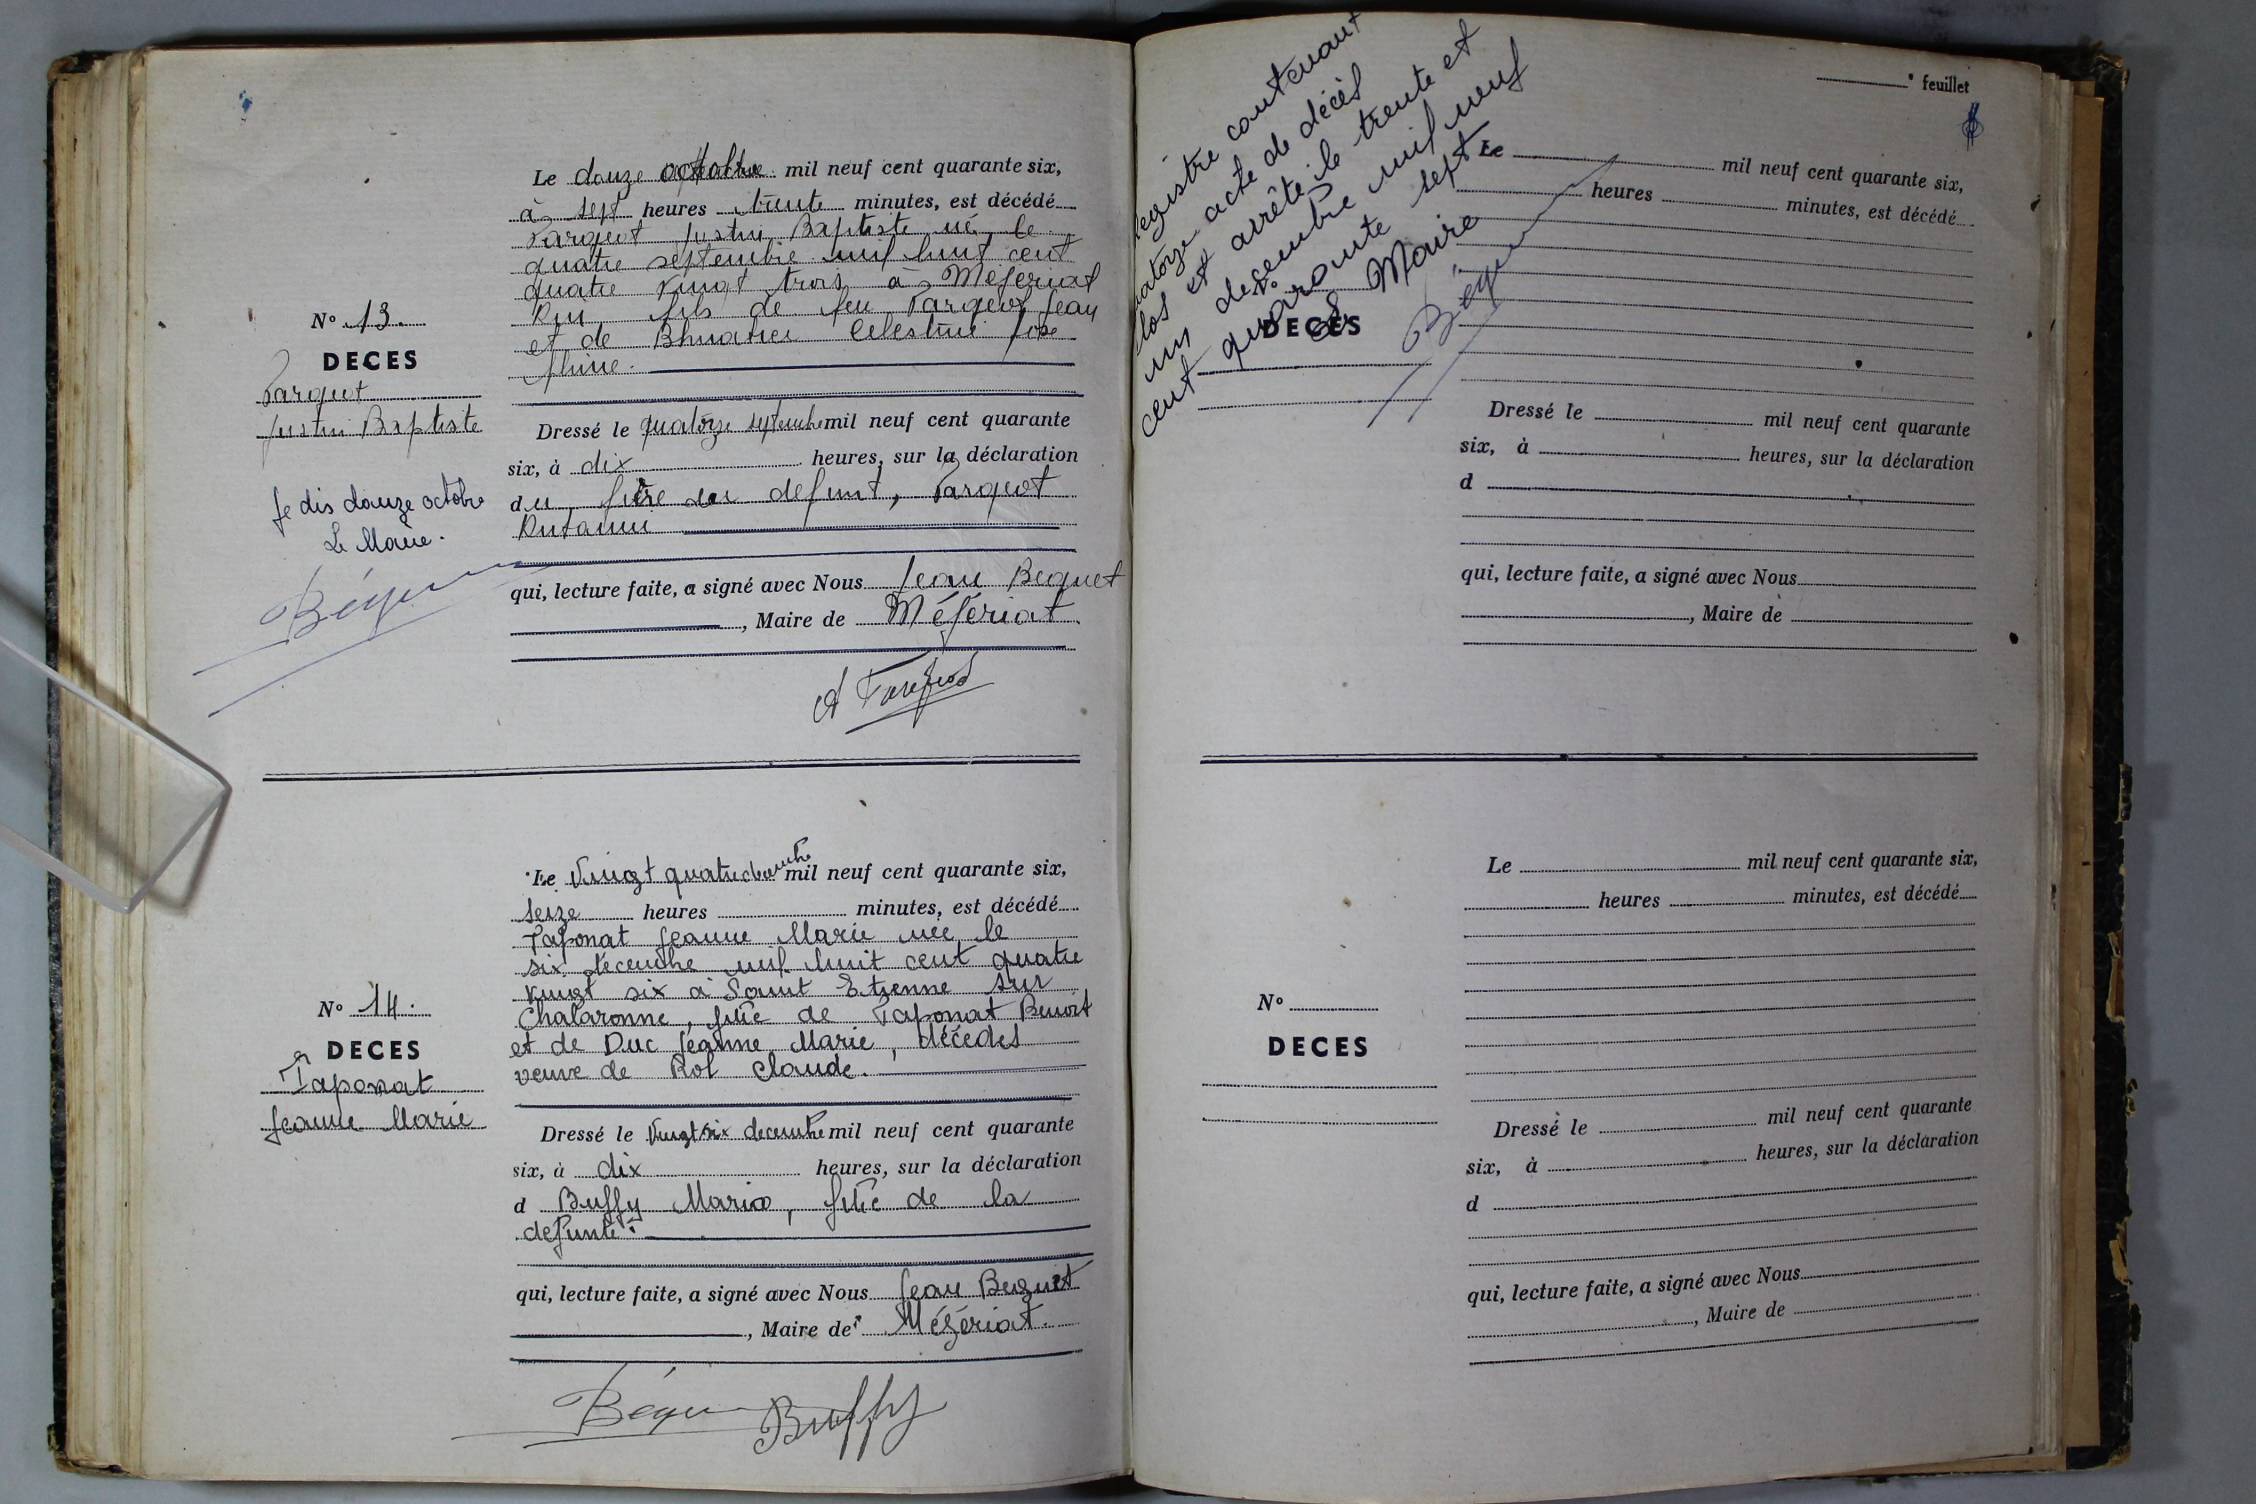 Le douze octobre mil neuf cent quarante six,
à sept heures trente minutes, est décédé
Farguot Justin Baptiste né le
quatre septembre mil huit cent
quatre vingt trois à Mézériat
Ain fils de feu Farguot Jean
et de Celestine José
phine.
N° 13.
DECES
Farguot
Justin Baptiste
Dressé le quatorze septembre mil neuf cent quarante
six, à dix heures, sur la déclaration
du frère du defunt, Farguot
Je dis douze octobre
Le Maire.
Béguet
qui, lecture faite, a signé avec Nous Jean Beguet
, Maire de Mézériat.
A Farguot
Le Vingt quatre decembre mil neuf cent quarante six,
seize heures minutes, est décédé
Taponat Jeanne Marie née le
six décembre mil huit cent quatre
vingt six à Saint Etienne sur
Chalaronne, fille de Taponat Benoit
et de Duc Jeanne Marie, décédés
veuve de Rol Claude.
N° 14.
DECES
Taponat
Jeanne Marie
Dressé le Vingt six decembre mil neuf cent quarante
six, à dix heures, sur la déclaration
d Buffy Maria, fille de la
defunte.
qui, lecture faite, a signé avec Nous Jean Beguet
, Maire de Mézériat.
Béguet Buffy
feuillet
registre contenant
quatorze acte de décès
clos et arrêté le trente et
un decembre mil neuf
cent quaronte sept
Le Maire
Béguet
Le mil neuf cent quarante six,
heures minutes, est décédé
N°
DECES
Dressé le mil neuf cent quarante
six, à heures, sur la déclaration
d
qui, lecture faite, a signé avec Nous
, Maire de
Le mil neuf cent quarante six,
heures minutes, est décédé
N°
DECES
Dressé le mil neuf cent quarante
six, à heures, sur la déclaration
d
qui, lecture faite, a signé avec Nous
, Maire de